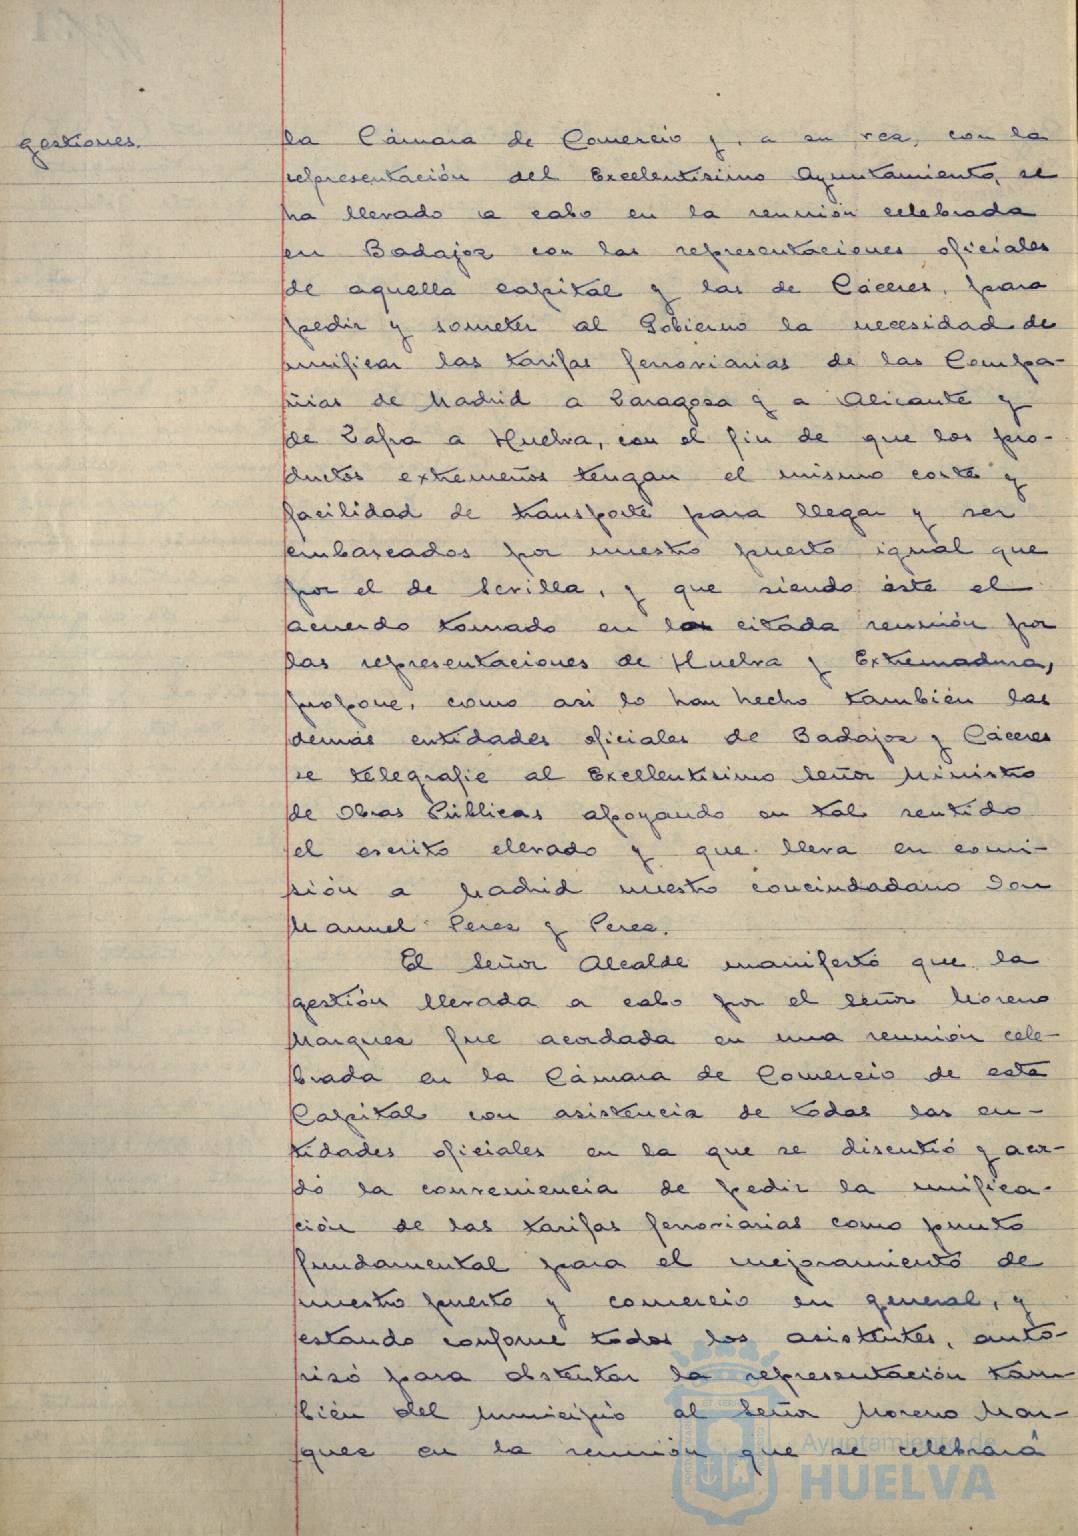 gestiones.
la Cámara de Comercio y, a su vez, con la
representación del Excelentísimo Ayuntamiento, se
ha llevado a cabo en la reunión celebrada
en Badajoz con las representaciones oficiales
de aquella capital y las de Cáceres, para
pedir y someter al Gobierno la necesidad de
unificar las tarifas ferroviarias de las Compa-
ñias de Madrid a Zaragoza y a Alicante y
de Zafra a Huelva, con el fin de que los pro-
ductos extremeños tengan el mismo coste y
facilidad de transporte para llegar y ser
embarcados por nuestro puerto igual que
por el de Sevilla, y que siendo éste el
acuerdo tomado en la citada reunión por
las representaciones de Huelva y Extremadura,
propone, como asi lo han hecho también las
demás entidades oficiales de Badajoz y Cáceres
se telegrafie al Excelentisimo Señor Ministro
de Obras Públicas apoyando en tal sentido
el escrito elevado y que lleva en comi-
sión a Madrid nuestro conciudadano Don
Manuel Perez y Perez.
El Señor Alcalde manifestó que la
gestión llevada a cabo por el Señor Moreno
Marquez fue acordada en una reunión cele-
brada en la Cámara de Comercio de esta
Capital con asistencia de todas las en-
tidades oficiales en la que se discutió y acor-
dó la conveniencia de pedir la unifica-
ción de las tarifas ferroviarias como punto
fundamental para el mejoramiento de
nuestro puerto y comercio en general, y
estando conforme todos los asistentes, auto-
rizó para obstentar la representación tam-
bién del Municipio al Señor Moreno Mar-
quez en la reunión que se celebrará
Ayuntamiento de
HUELVA